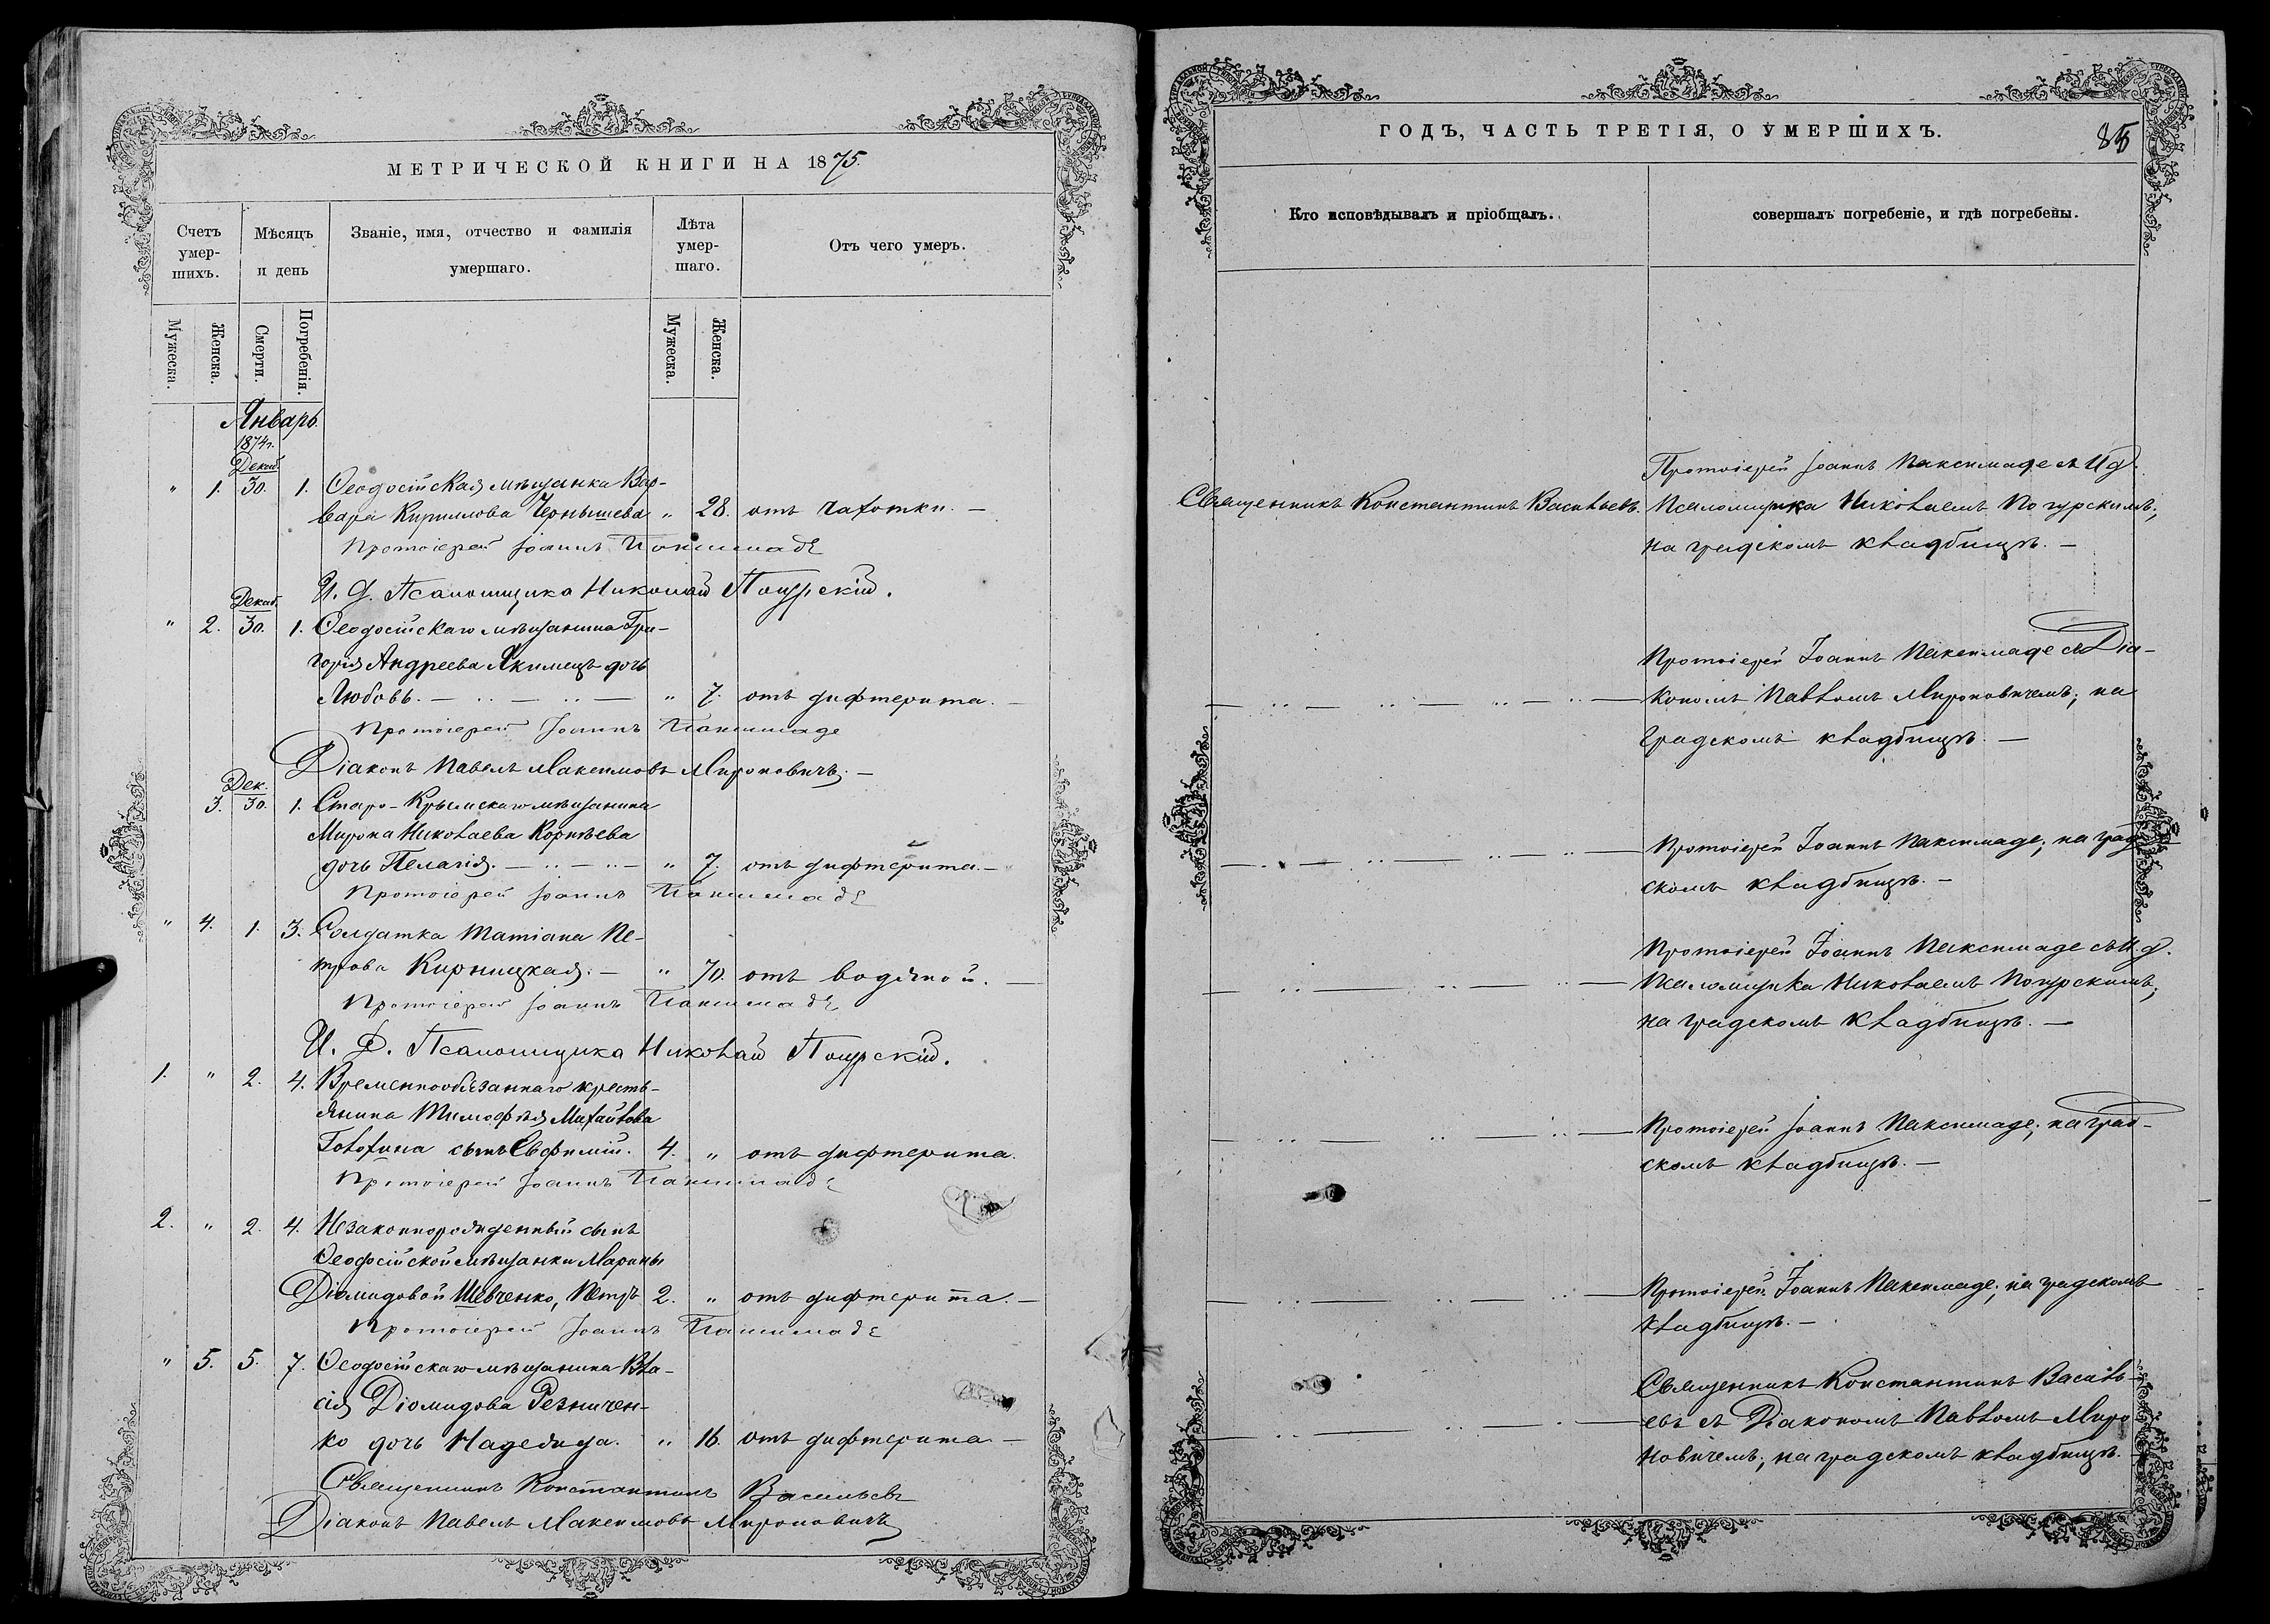 МЕТРИЧЕСКОЙ КНИГИ НА 1875.
Счетъ умер-шихъ.
Мѣсяцъ и день
Званіе, имя, отчество и фамилія умершаго.
Лѣта умер-шаго.
Отъ чего умеръ.
Мужеска.
Женска.
Смерти.
Погребенія.
Мужеска.
Женска.
Январь.
1874г.
Декаб.
" 1. 30. 1. Ѳеодосійская мѣщанка Вар-
вара Кириллова Чернышева " 28. отъ чахотки. —
Протоіерей Іоаннъ Паксимаде
И. Д. Псаломщика Николай Погурскій.
Декаб.
" 2. 30. 1. Ѳеодосійскаго мѣщанина Гри-
горія Андреева Якимецъ дочь
Любовь. — " 7. отъ дифтерита. —
Протоіерей Іоаннъ Паксимаде
Діаконъ Павелъ Максимовъ Мироновичъ. —
Дек.
3. 30. 1. Старо-Крымскаго мѣщанина
Мирона Николаева Корнѣева
дочь Пелагія. — " 7. отъ дифтерита. —
Протоіерей Іоаннъ Паксимаде
" 4. 1. 3. Солдатка Татіана Пе-
трова Кирницкая. — " 70. отъ водяной. —
Протоіерей Іоаннъ Паксимаде
И. Д. Псаломщика Николай Погурскій.
1. " 2. 4. Временнообязаннаго кресть-
янина Тимофѣя Михайлова
Голохина сынъ Евфимій. 4. " отъ дифтерита.
Протоіерей Іоаннъ Паксимаде
2. " 2. 4. Незаконнорожденный сынъ
Ѳеодосійской мѣщанки Марины
Діомидовой Шевченко, Петръ 2. " отъ дифтерита. —
Протоіерей Іоаннъ Паксимаде
" 5. 5. 7. Ѳеодосійскаго мѣщанина Вла-
сія Діомидова Резничен-
ко дочь Надежда. " 16. отъ дифтерита. —
Священникъ Константинъ Васильевъ
Діаконъ Павелъ Максимовъ Мироновичъ
ГОДЪ, ЧАСТЬ ТРЕТІЯ, О УМЕРШИХЪ.
85
Кто исповѣдывалъ и пріобщалъ.
совершалъ погребеніе, и гдѣ погребены.
Протоіерей Іоаннъ Паксимаде съ И д.
Священникъ Константинъ Васильевъ. Псаломщика Николаемъ Погурскимъ;
на градскомъ кладбищѣ. —
Протоіерей Іоаннъ Паксимаде съ Діа-
кономъ Павломъ Мироновичемъ; на
градскомъ кладбищѣ. —
Протоіерей Іоаннъ Паксимаде; на град-
скомъ кладбищѣ. —
Протоіерей Іоаннъ Паксимаде съ И. д.
Псаломщика Николаемъ Погурскимъ;
на градскомъ кладбищѣ. —
Протоіерей Іоаннъ Паксимаде; на град-
скомъ кладбищѣ. —
Протоіерей Іоаннъ Паксимаде; на градскомъ
кладбищѣ. —
Священникъ Константинъ Василь-
евъ съ Діакономъ Павломъ Миро-
новичемъ; на градскомъ кладбищѣ.